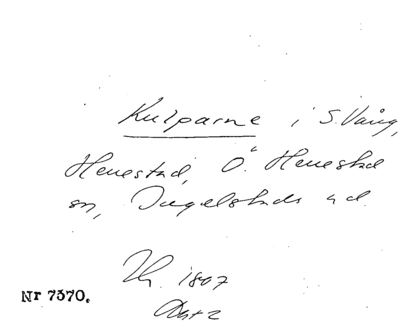 Kulparne i S. Vång,
Henestad, Ö. Henestad
sn, Ingelstads hd.
Th. 1807
Akt 2
Nr 7370.